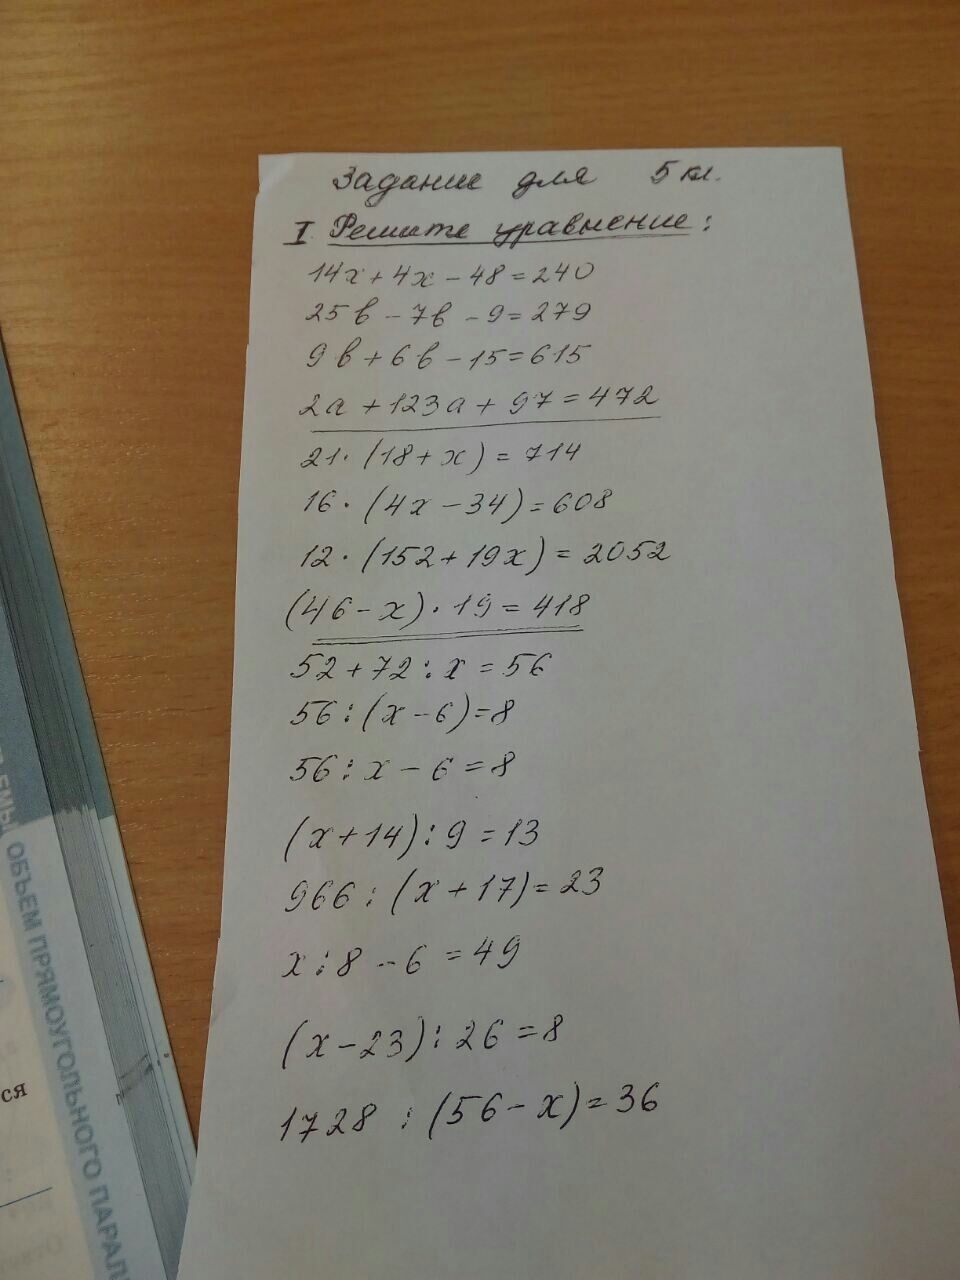 Задание для 5 кл.
I. Решите уравнение:
14x + 4x - 48 = 240
25в - 7в - 9 = 279
9в + 6в - 15 = 615
2a + 123a + 97 = 472
21 · (18 + x) = 714
16 · (4x - 34) = 608
12 · (152 + 19x) = 2052
(46 - x) · 19 = 418
52 + 72 : x = 56
56 : (x - 6) = 8
56 : x - 6 = 8
(x + 14) : 9 = 13
966 : (x + 17) = 23
x : 8 - 6 = 49
(x - 23) : 26 = 8
1728 : (56 - x) = 36
ОБЪЕМ ПРЯМОУГОЛЬНОГО
ся